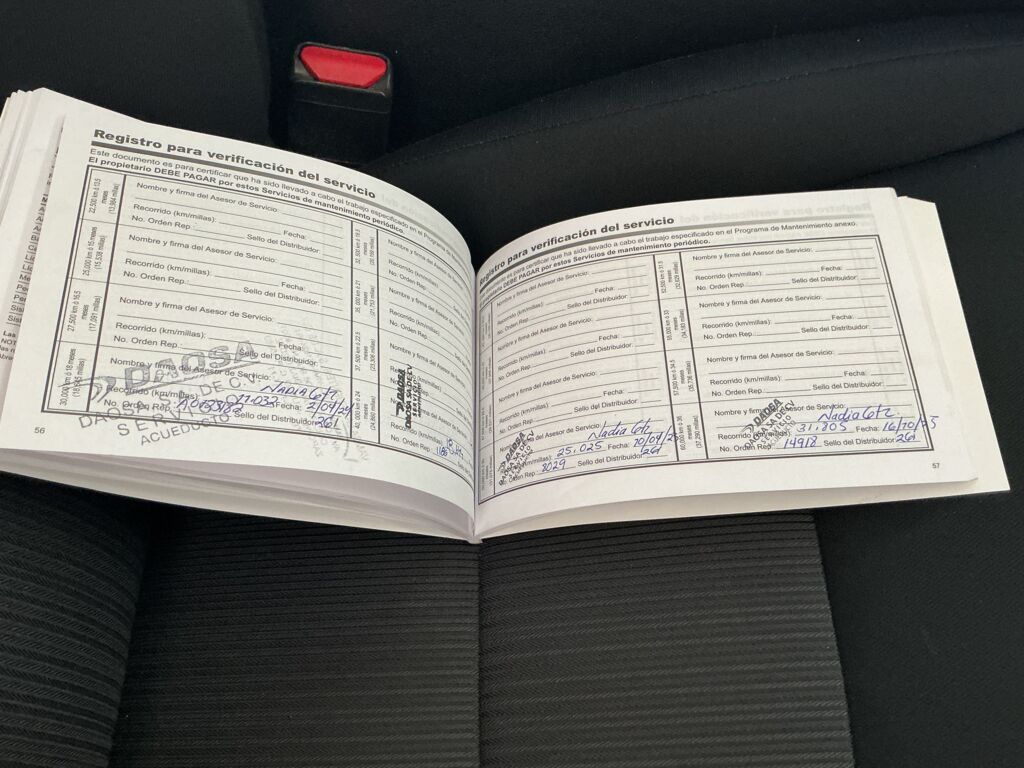 Registro para verificación del servicio
Este documento es para certificar que ha sido llevado a cabo el trabajo especificado en el Programa de
El propietario DEBE PAGAR por estos Servicios de mantenimiento periódico.
22,500 km ó 13.5 meses
Nombre y firma del Asesor de Servicio:
Recorrido (km/millas): Fecha:
No. Orden Rep.: Sello del Distribuidor:
25,000 km ó 15 meses (15,538 millas)
Nombre y firma del Asesor de Servicio:
Recorrido (km/millas): Fecha:
No. Orden Rep.: Sello del Distribuidor:
27,500 km ó 16.5 meses (17,091 millas)
Nombre y firma del Asesor de Servicio:
Recorrido (km/millas):
No. Orden Rep.: Sello del Distribuidor:
30,000 km ó 18 meses
Nombre y firma del Asesor de Servicio:
Recorrido (km/millas): Fecha:
No. Orden Rep.: Sello del Distribuidor: 261
DAOSA
DAOSA S.A. DE C.V.
SERVICIO
ACUEDUCTO
32,500 km ó 19.5 meses
Nombre y firma del
Recorrido (km/millas):
No. Orden Rep.:
35,000 km ó 21 meses
Nombre y firma del
Recorrido (km/millas):
No. Orden Rep.:
37,500 km ó 22.5 meses
Nombre y firma del
Recorrido (km/millas):
No. Orden Rep.:
40,000 km ó 24 meses
Nombre y firma del
Recorrido (km/millas):
No. Orden Rep.:
DAOSA
DAOSA SA DE CV
SERVICIO
56
Registro para verificación del servicio
es para certificar que ha sido llevado a cabo el trabajo especificado en el Programa de Mantenimiento anexo.
DEBE PAGAR por estos Servicios de mantenimiento periódico.
Nombre y firma del Asesor de Servicio:
Recorrido (km/millas): Fecha:
No. Orden Rep.: Sello del Distribuidor:
Nombre y firma del Asesor de Servicio:
Recorrido (km/millas): Fecha:
No. Orden Rep.: Sello del Distribuidor:
Nombre y firma del Asesor de Servicio:
Recorrido (km/millas): Fecha:
No. Orden Rep.: Sello del Distribuidor:
Nombre y firma del Asesor de Servicio: Nadia
25.025 Fecha:
Orden Rep.: 8029 Sello del Distribuidor: 261
DAOSA
52,500 km ó 31.5 meses
Nombre y firma del Asesor de Servicio:
Recorrido (km/millas): Fecha:
No. Orden Rep.: Sello del Distribuidor:
55,000 km ó 33 meses
Nombre y firma del Asesor de Servicio:
Recorrido (km/millas): Fecha:
No. Orden Rep.: Sello del Distribuidor:
57,500 km ó 34.5 meses
Nombre y firma del Asesor de Servicio:
Recorrido (km/millas): Fecha:
No. Orden Rep.: Sello del Distribuidor:
60,000 km ó 36 meses
Nombre y firma del Asesor de Servicio: Nadia
Recorrido 31.805 Fecha: 16/10/25
No. Orden Rep.: 14918 Sello del Distribuidor: 261
DAOSA
DAOSA SA DE CV
57